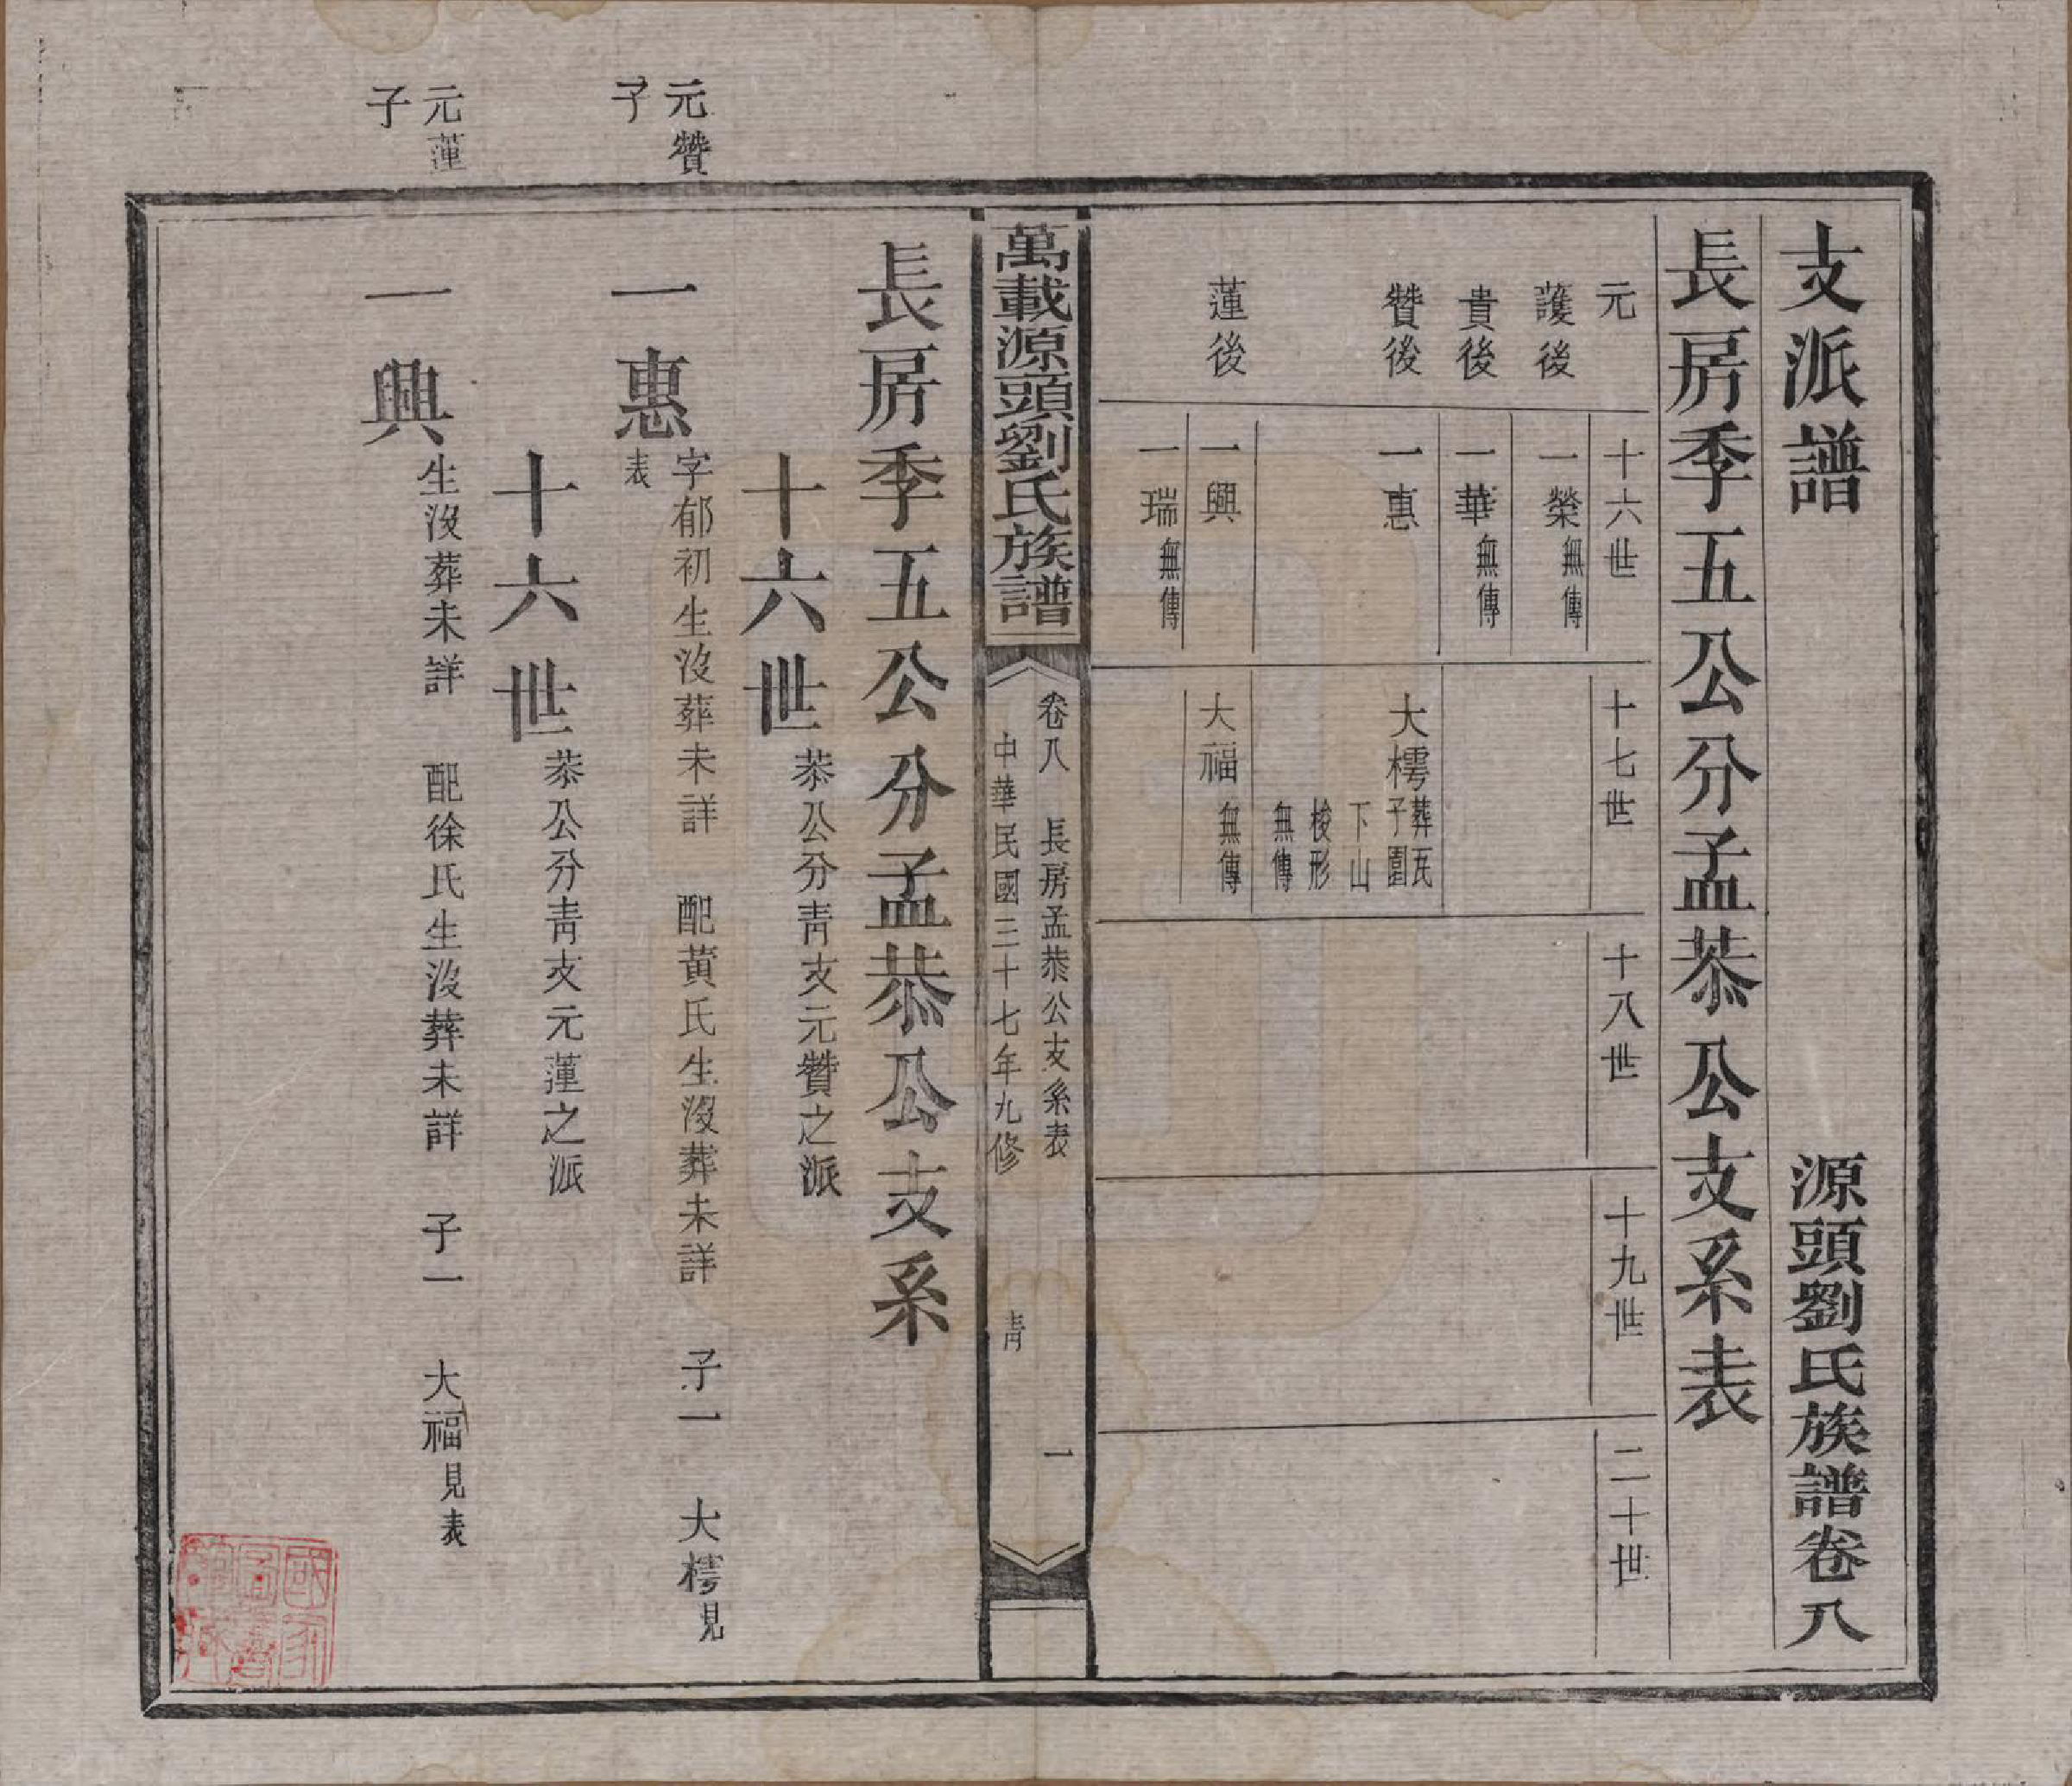 支派譜　源頭劉氏族譜卷八
長房季五公分孟恭公支系表
元　十六世　十七世　十八世　十九世　二十世
護後　一榮無傳
貴後　一華無傳
贊後　一惠　大樗葬瓦子園下山梭形無傳
蓮後　一興　大福無傳
一瑞無傳
萬載源頭劉氏族譜
卷八　長房孟恭公支系表　一
中華民國三十七年九修　青
長房季五公分孟恭公支系
十六世恭公分靑支元贊之派
元贊子
一惠字郁初生沒葬未詳　配黃氏生沒葬未詳　子一　大樗見表
十六世恭公分靑支元蓮之派
元蓮子
一興生沒葬未詳　配徐氏生沒葬未詳　子一　大福見表